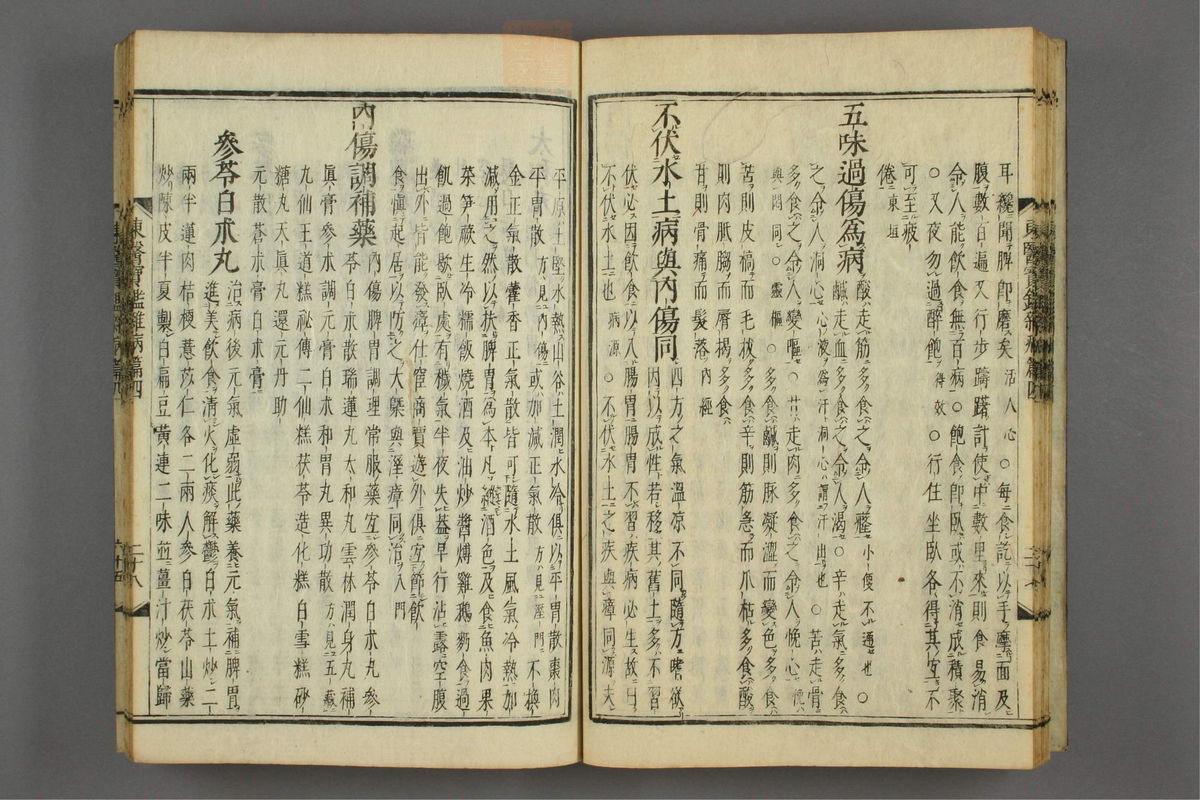 耳纔聞ケハ脾即磨矣活人心○每食訖以手摩面及
腹數百遍又行步躊躇計使中數里來則食易消
令人能飲食無百病○飽食即臥或不消成積聚
○又夜勿過醉飽得效○行住坐臥各得其宜不
可至疲
倦東垣
五味過傷為病酸走筋多食之令人癃小便不通也○
鹹走血多食之令人渴○辛走氣多食
之令人洞心心液為汗洞心謂汗出也○苦走骨
多食之令人變嘔○甘走肉多食之令人悗心悗
與悶同○靈樞○多食鹹則脉凝澁而變色多食
苦則皮槁而毛拔多食辛則筋急而爪枯多食酸
則肉胝䐢而脣揭多食
甘則骨痛而髮落內經
不伏水土病與內傷同四方之氣溫凉不同隨方嗜欲
因以成性若移其舊土多不習
伏必因飲食以入腸胃腸胃不習疾病必生故曰
不伏水土也病源○不伏水土之疾與瘴同源夫
平原土堅水熱山谷土潤水冷俱以平胃散棗肉
平胃散方見內傷或加減正氣散方見濕門不換
金正氣散藿香正氣散皆可隨水土風氣冷熱加
減用之然以扶脾胃為本凡縱酒色及食魚肉果
菜笋蕨生冷糯飯燒酒及油炒醬煿雞鵝麪食過
飢過飽歇臥處有穢氣半夜失蓋早行沾露空腹
出外皆能發瘴仕窟商賈遊外俱宜節飲
食愼起居以防之大槩與溼瘴同治入門
內傷調補藥內傷脾胃調理常服藥宜參苓白朮丸參
苓白朮散瑞蓮丸太和丸雲林潤身丸補
眞膏參朮調元膏白朮和胃丸異功散方見五藏
九仙王道糕祕傳二仙糕茯苓造化糕白雪糕砂
糖丸天眞丸還元丹助
元散蒼朮膏白朮膏
參苓白朮丸治病後元氣虛弱此藥養元氣補脾胃
進美飮食清火化痰解鬱白朮土炒二
兩半蓮肉桔梗薏苡仁各二兩人參白茯苓山藥
炒陳皮半夏製白扁豆黃連二味並薑汁炒當歸
東醫寶鑑雜病篇四